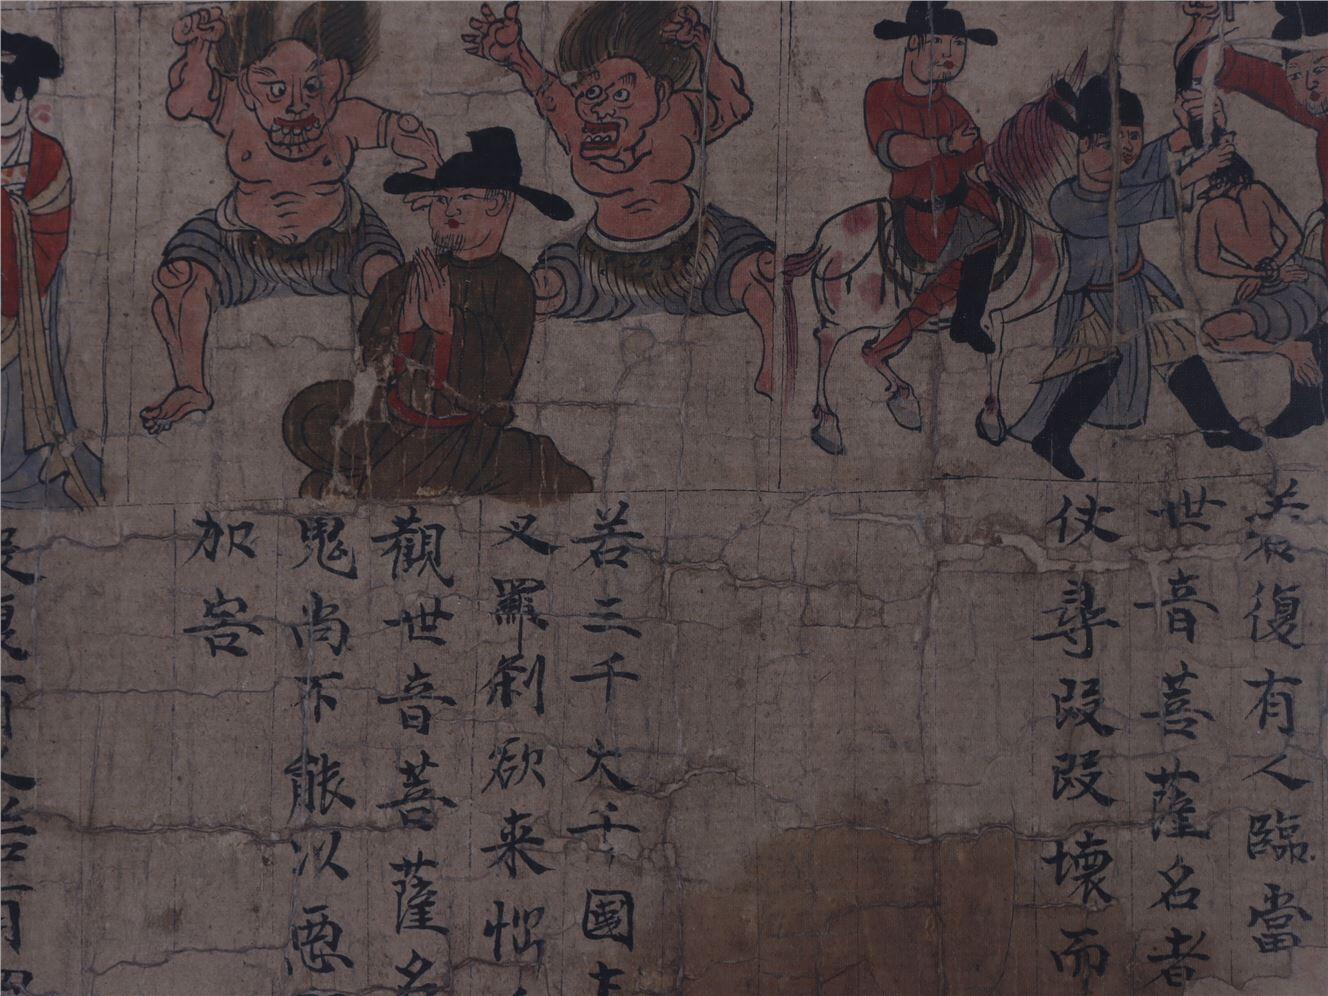 若復有人臨當
世音菩薩名者
仗尋段段壞而
若三千大千國土
叉羅刹欲来惱
觀世音菩薩名
鬼尚不能以惡
加害